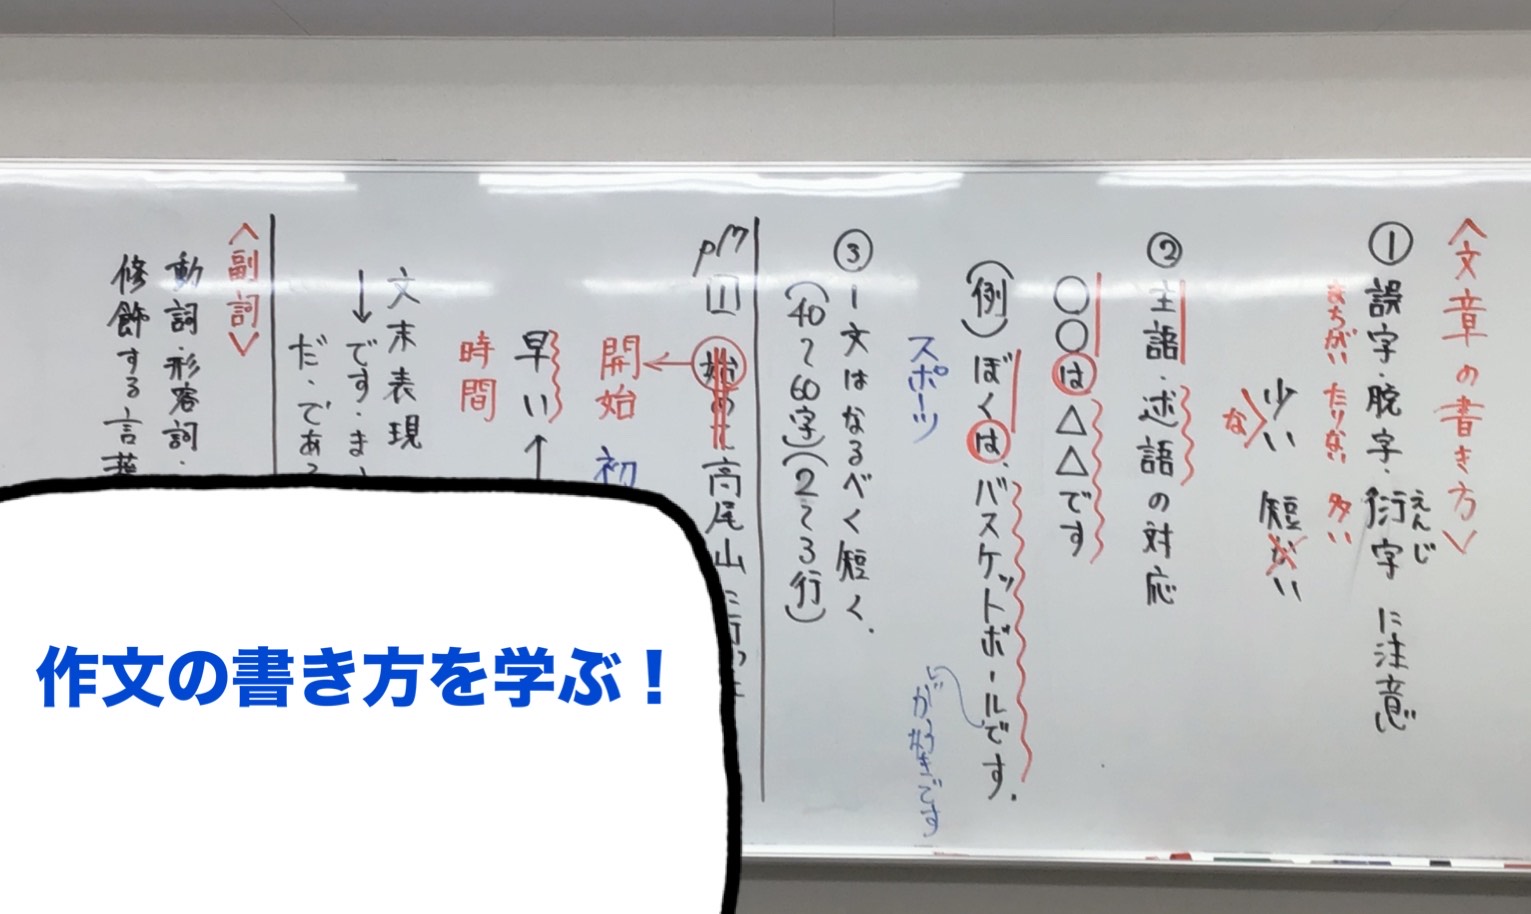 〈文章の書き方〉
① 誤字・脱字・衍字に注意
えんじ
まちがい たりない 多い
少い 短かい
な
② 主語・述語の対応
○○は△△です
(例) ぼくは、バスケットボールです.
スポーツ
が好きです
③ 一文はなるべく短く.
(40〜60字)(2〜3行)
1 始めて高尾山に行った
開始 初
早い
時間
文末表現
↓です・ま
だ・であ
〈副詞〉
動詞・形容詞・
修飾する言葉
作文の書き方を学ぶ！